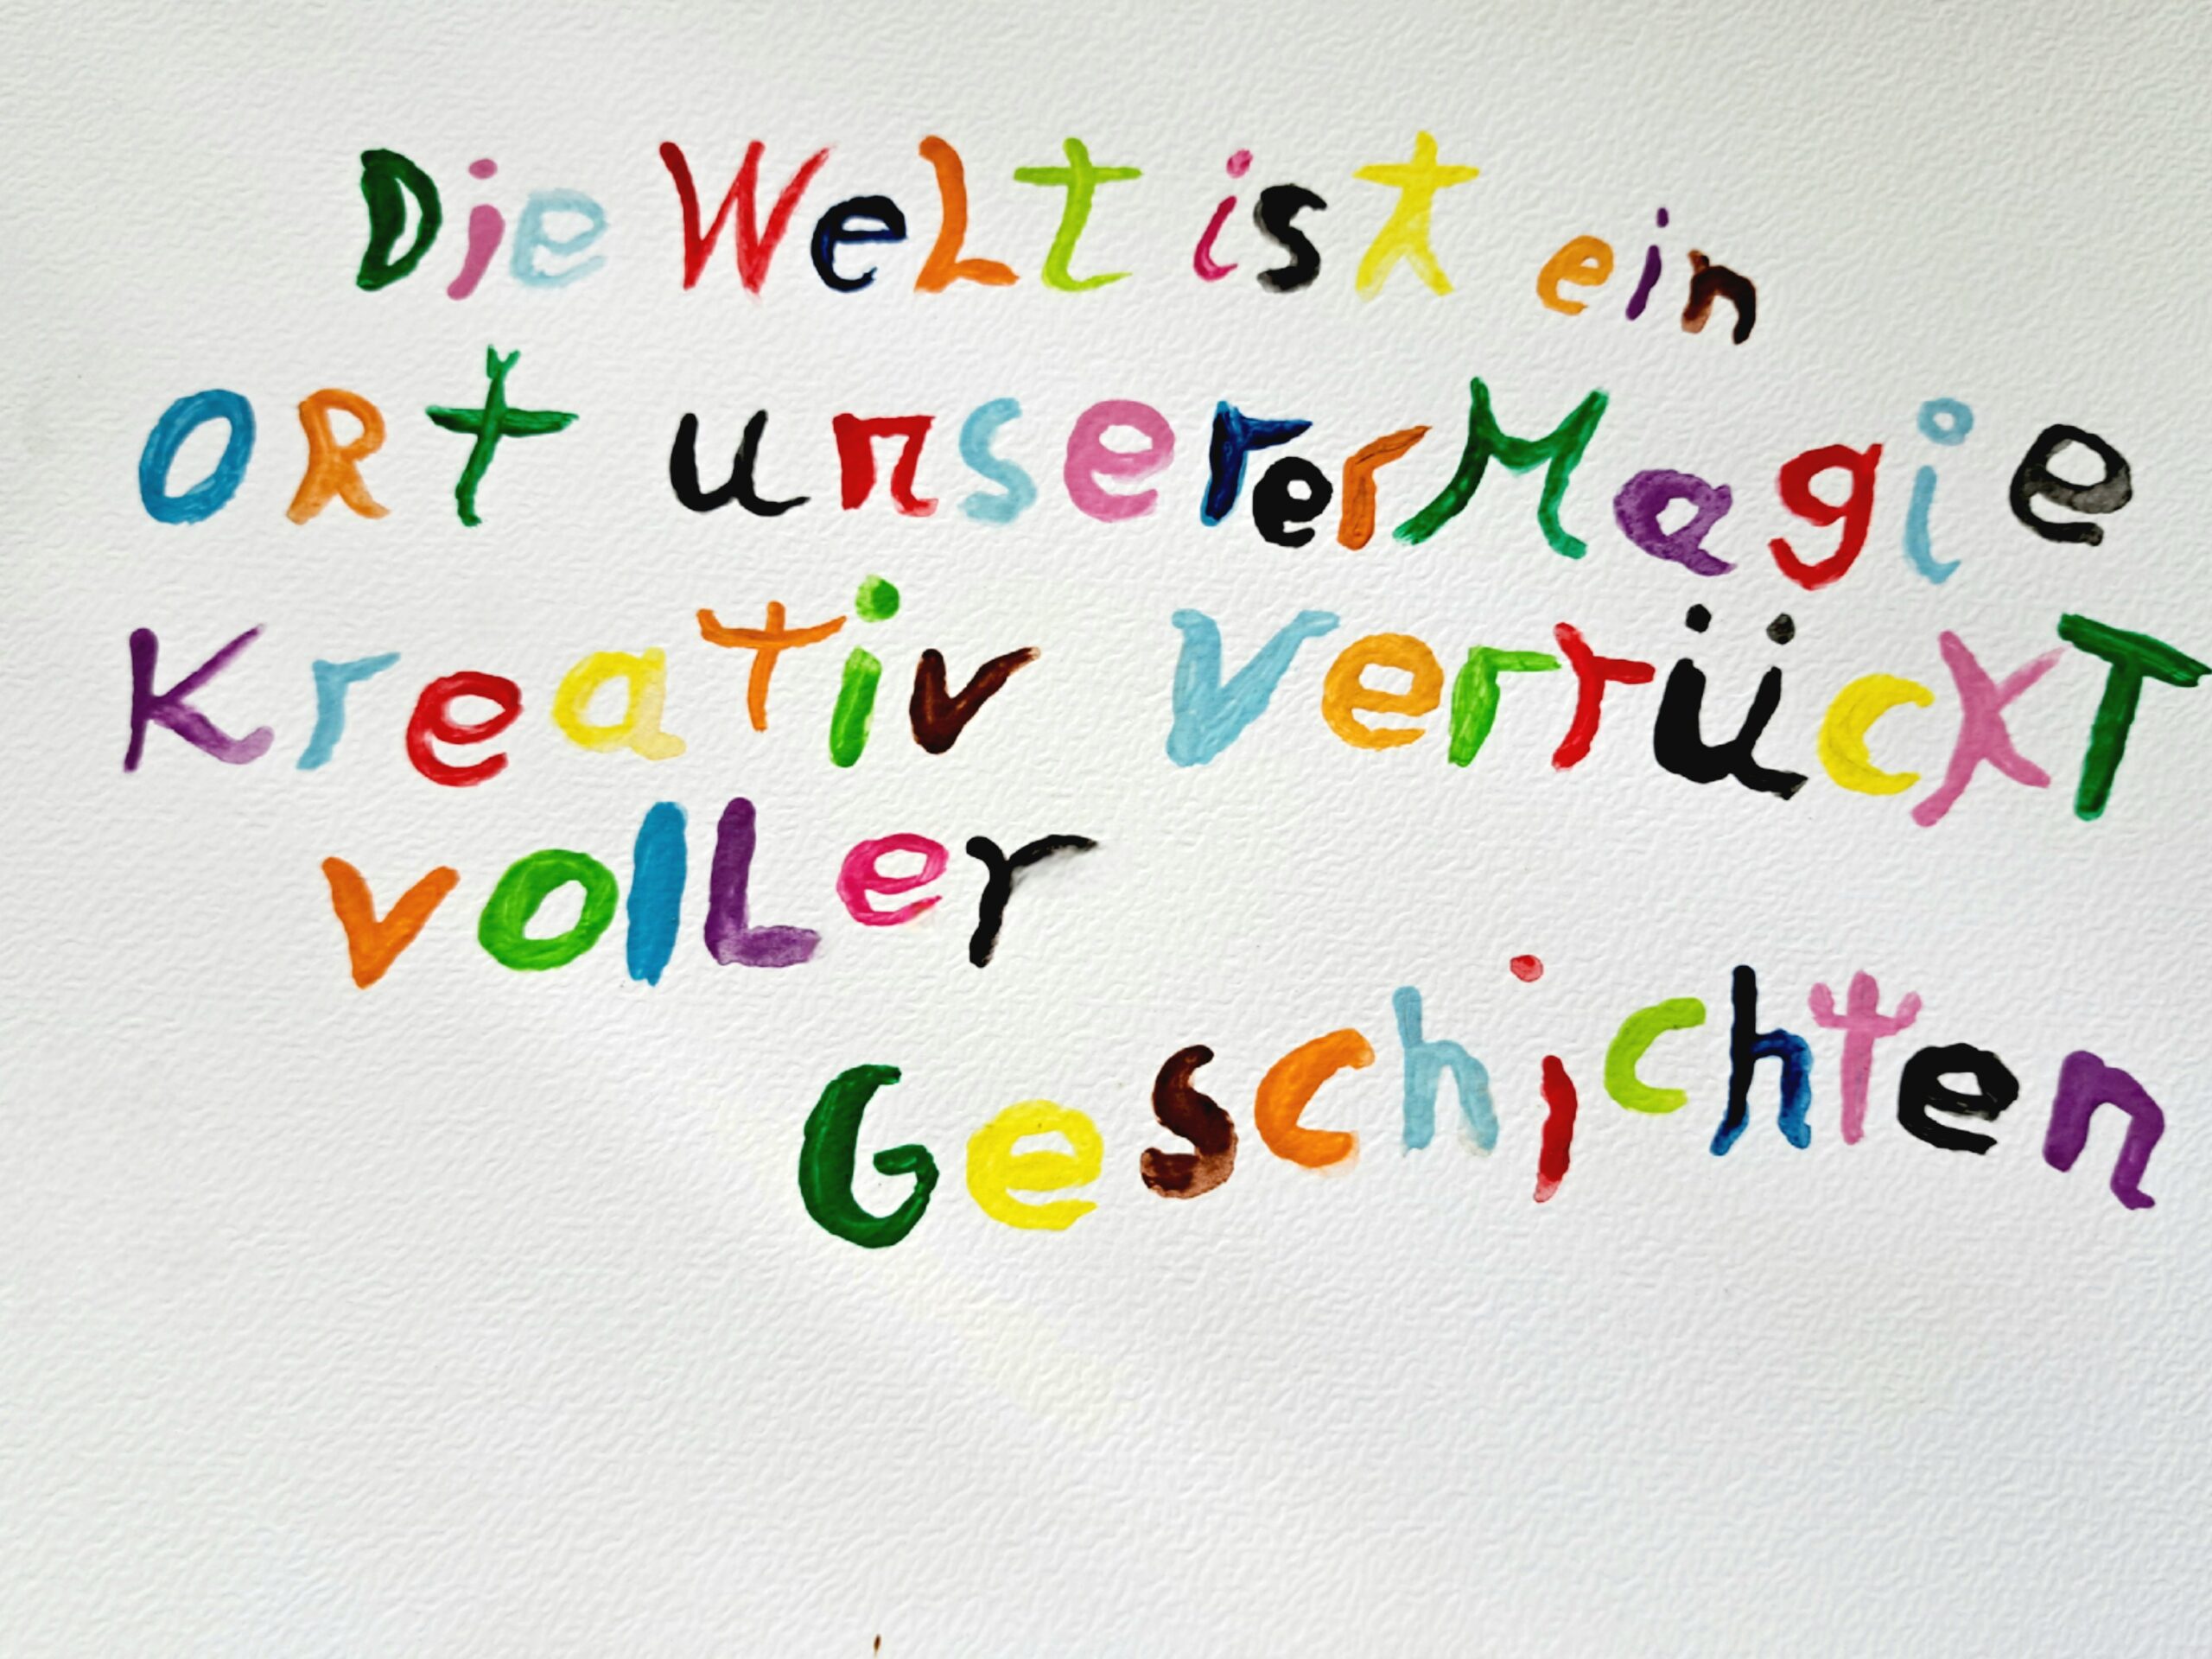 Die WeLt ist ein
ORt unserer Magie
Kreativ VerrückT
volLer
Geschichten